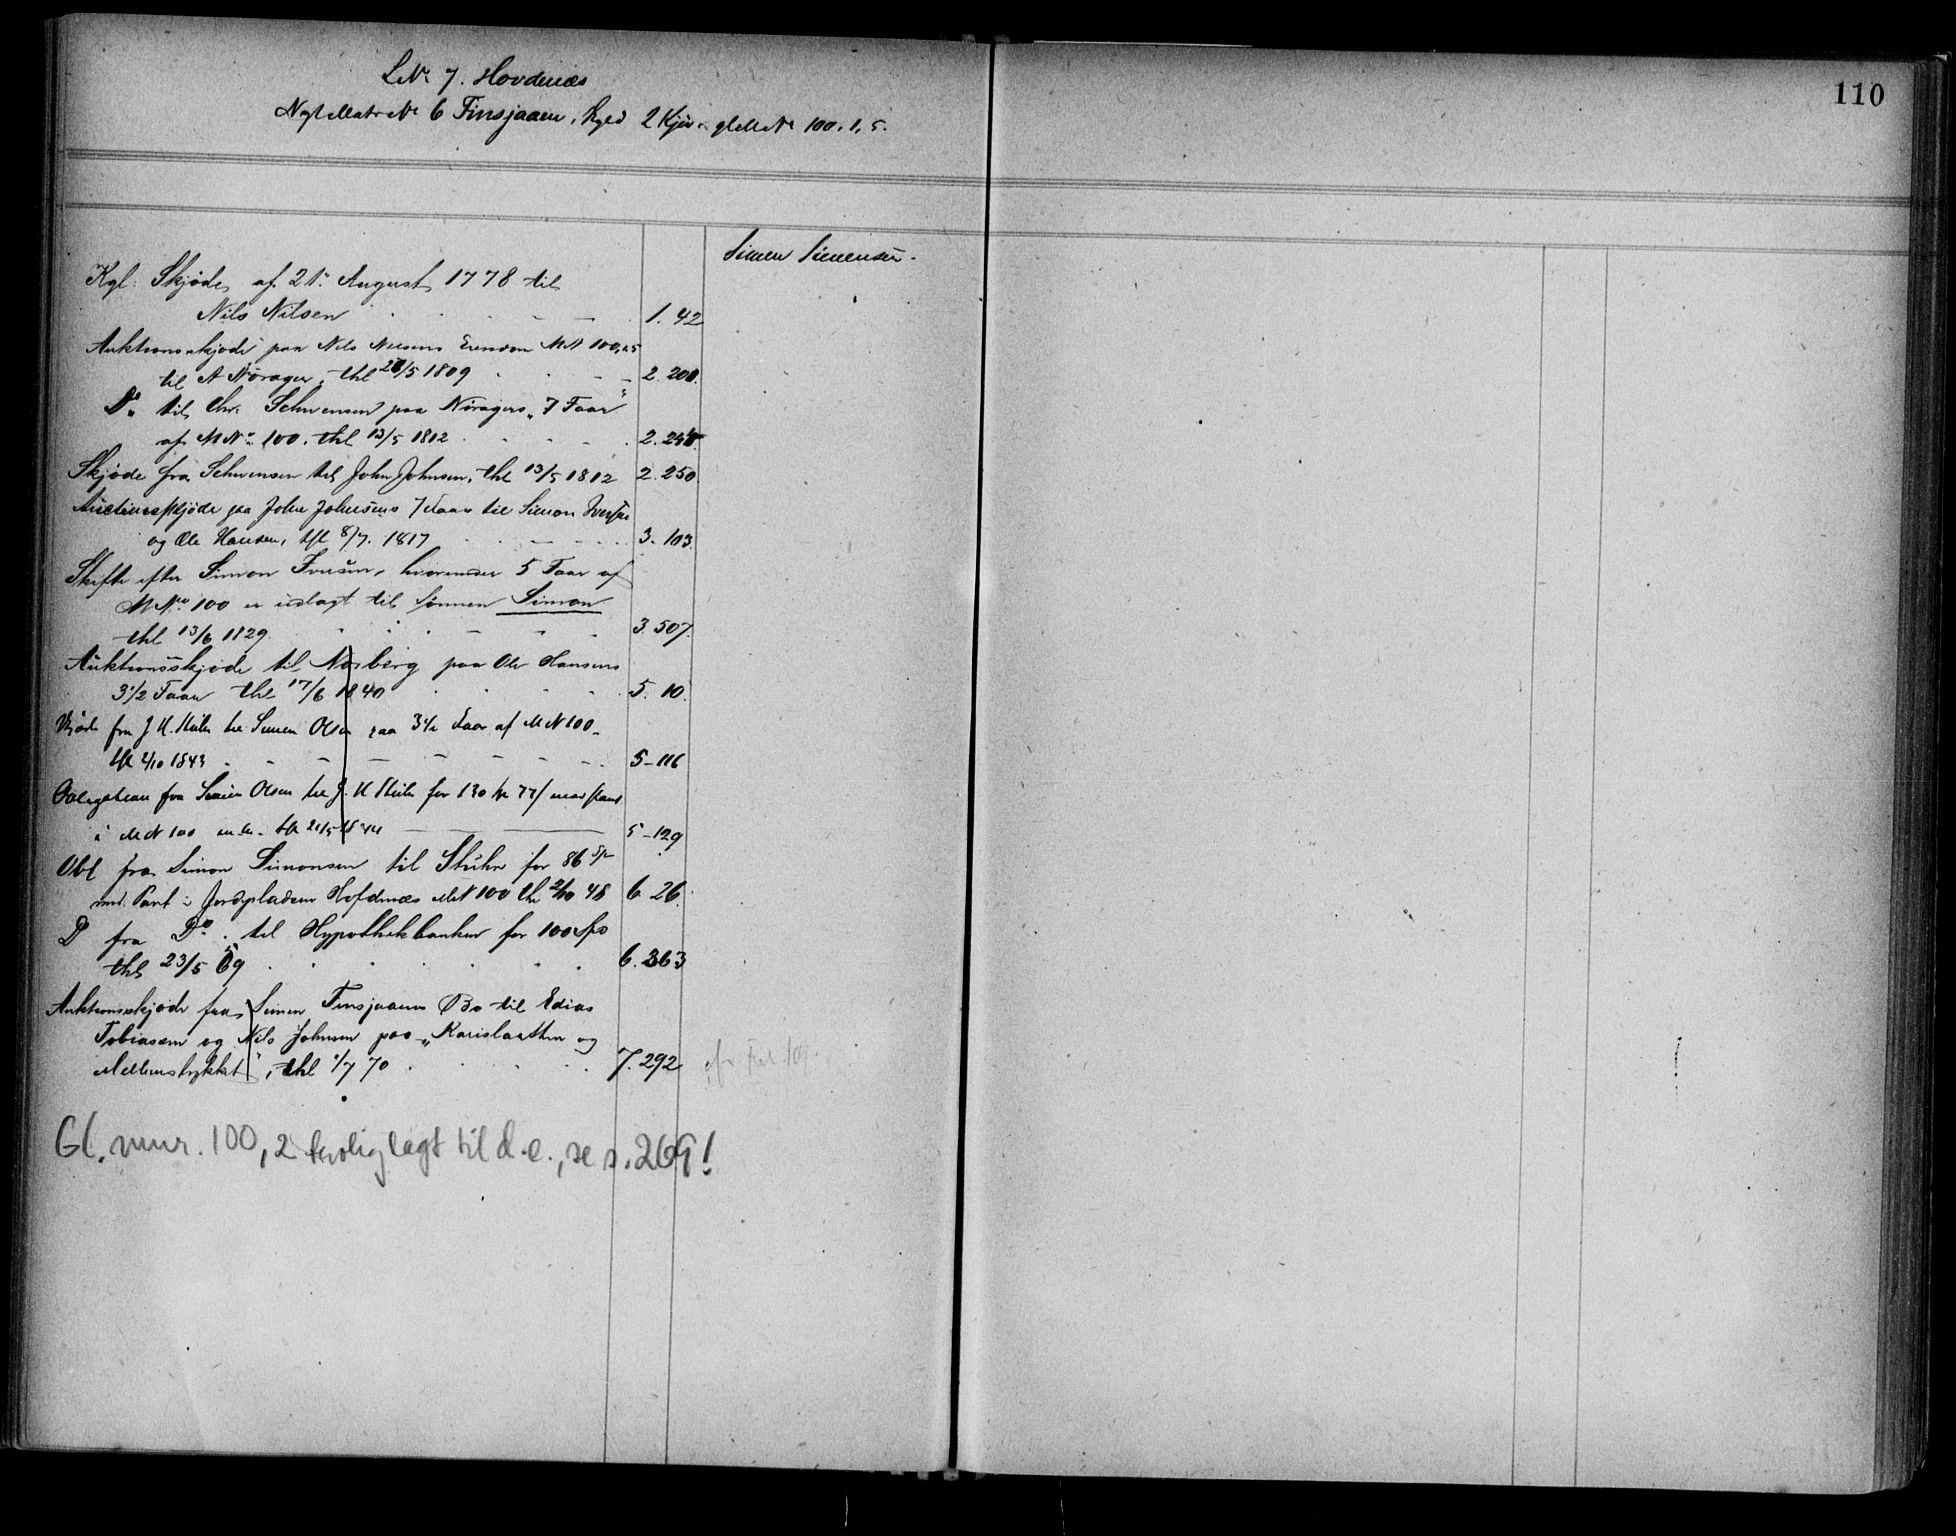 110
L.N. 7. Hovdenæs
Ny Matr. N. 6 Finsjaaen, Skyld 2 Kjør. gl. M. N. 100. 1, 5.
Simen Simensen.
Kgl. Skjøde af 21. August 1778 til
Nils Nilsen 1. 42
Auktionsskjøde paa Nils Nilsens Eiendom MN 100, 1.5
til A Nørager, thl 28/5 1809 2. 200.
Do til Chr. Schwensen paa Nøragers „7 Faar"
af M No 100. thl 13/5 1812 2. 248
Skjøde fra Schwensen til John Johnsen, thl 13/5 1812 2. 250
Auctionsskjøde paa John Johnsens 7 Faar til Simon Iversen
og Ole Hansen, thl 8/7. 1817 3. 103.
Skifte efter Simon Iversen, hvorunder 5 Faar af
M No. 100 er udlagt til sønnen Simon
thl 13/6 1829 3. 507.
Auktionsskjøde til Norberg paa Ole Hansens
3 1/2 Faar thl 17/6 1840 5. 10.
Skjøde fra J. H. Stuhr til Simen Olsen paa 3 1/2 Faar af M N 100.
thl 2/10 1843 5-116
Obligation fra Simen Olsen til J. H Stuhr for 130 Spd 77 ß mod pant
i M N 100 m.m. thl 21/5 1844 5-129
Obl fra Simon Simonsen til Stuhr for 86 Sp
md. Pant i Jordepladsen Hofdenæs M N 100 thl 2/10 48 6. 26.
Do fra Do. til Hypothekbanken for 100 Spd
thl 23/5 59 6. 363
Auktionsskjøde fra Simen Finsjaaens Bo til Edias
Tobiassen og Nils Johnsen paa „Karislaatten og
Mellemstykket", thl 1/7 70 7. 292
Gl. mnr. 100, 2 trolig lagt til d.e., se s. 269!